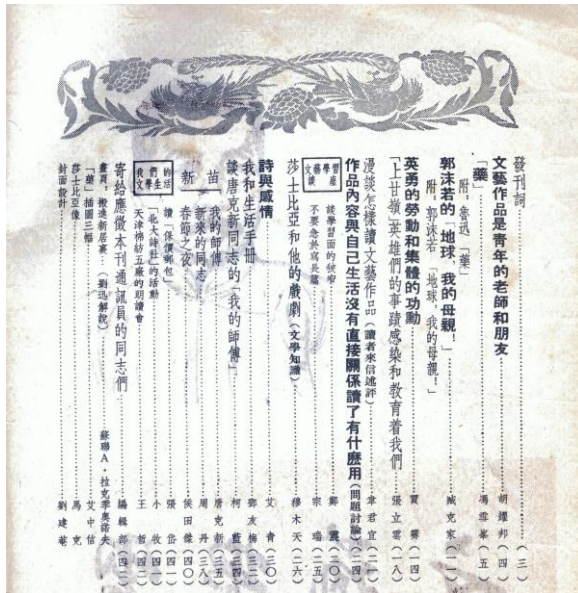 發刊詞……(三)
文藝作品是青年的老師和朋友……胡耀邦(四)
「藥」……馮雪峯(五)
附：魯迅「藥」
郭沫若的「地球，我的母親！」……臧克家(一一)
附：郭沫若「地球，我的母親！」
英勇的勞動和集體的功勳……賈霽(一四)
「上甘嶺」英雄們的事蹟感染和教育着我們……張立雲(一八)
漫談怎樣讀文藝作品(讀者來信述評)……韋君宜(二一)
作品內容與自己生活沒有直接關係讀了有什麼用(問題討論)(二四)
文藝學習談座
談學習面的狹窄……鄭震(二〇)
不要急於寫長篇……宗瑞(二五)
莎士比亞和他的戲劇(文學知識)……穆木天(二六)
詩與感情……艾青(三〇)
我和生活手冊……鄧友梅(三二)
談唐克新同志的「我的師傅」……柯藍(三四)
新苗
我的師傅……唐克新(三五)
新來的同志……周丹(三八)
春節之夜……侯田傑(四〇)
我們的文學生活
讀「英價郵包」……張岱(四一)
「北大詩社」的活動……小牧(四一)
天津棉紡五廠的朗讀會……王哲(四二)
寄給應徵本刊通訊員的同志們……編輯部(四二)
畫頁：搬進新居裏(劉迅解說)……蘇聯A·拉克季奧諾夫
「藥」插圖三幅……艾中信
莎士比亞像……馬克
封面設計……劉建菴